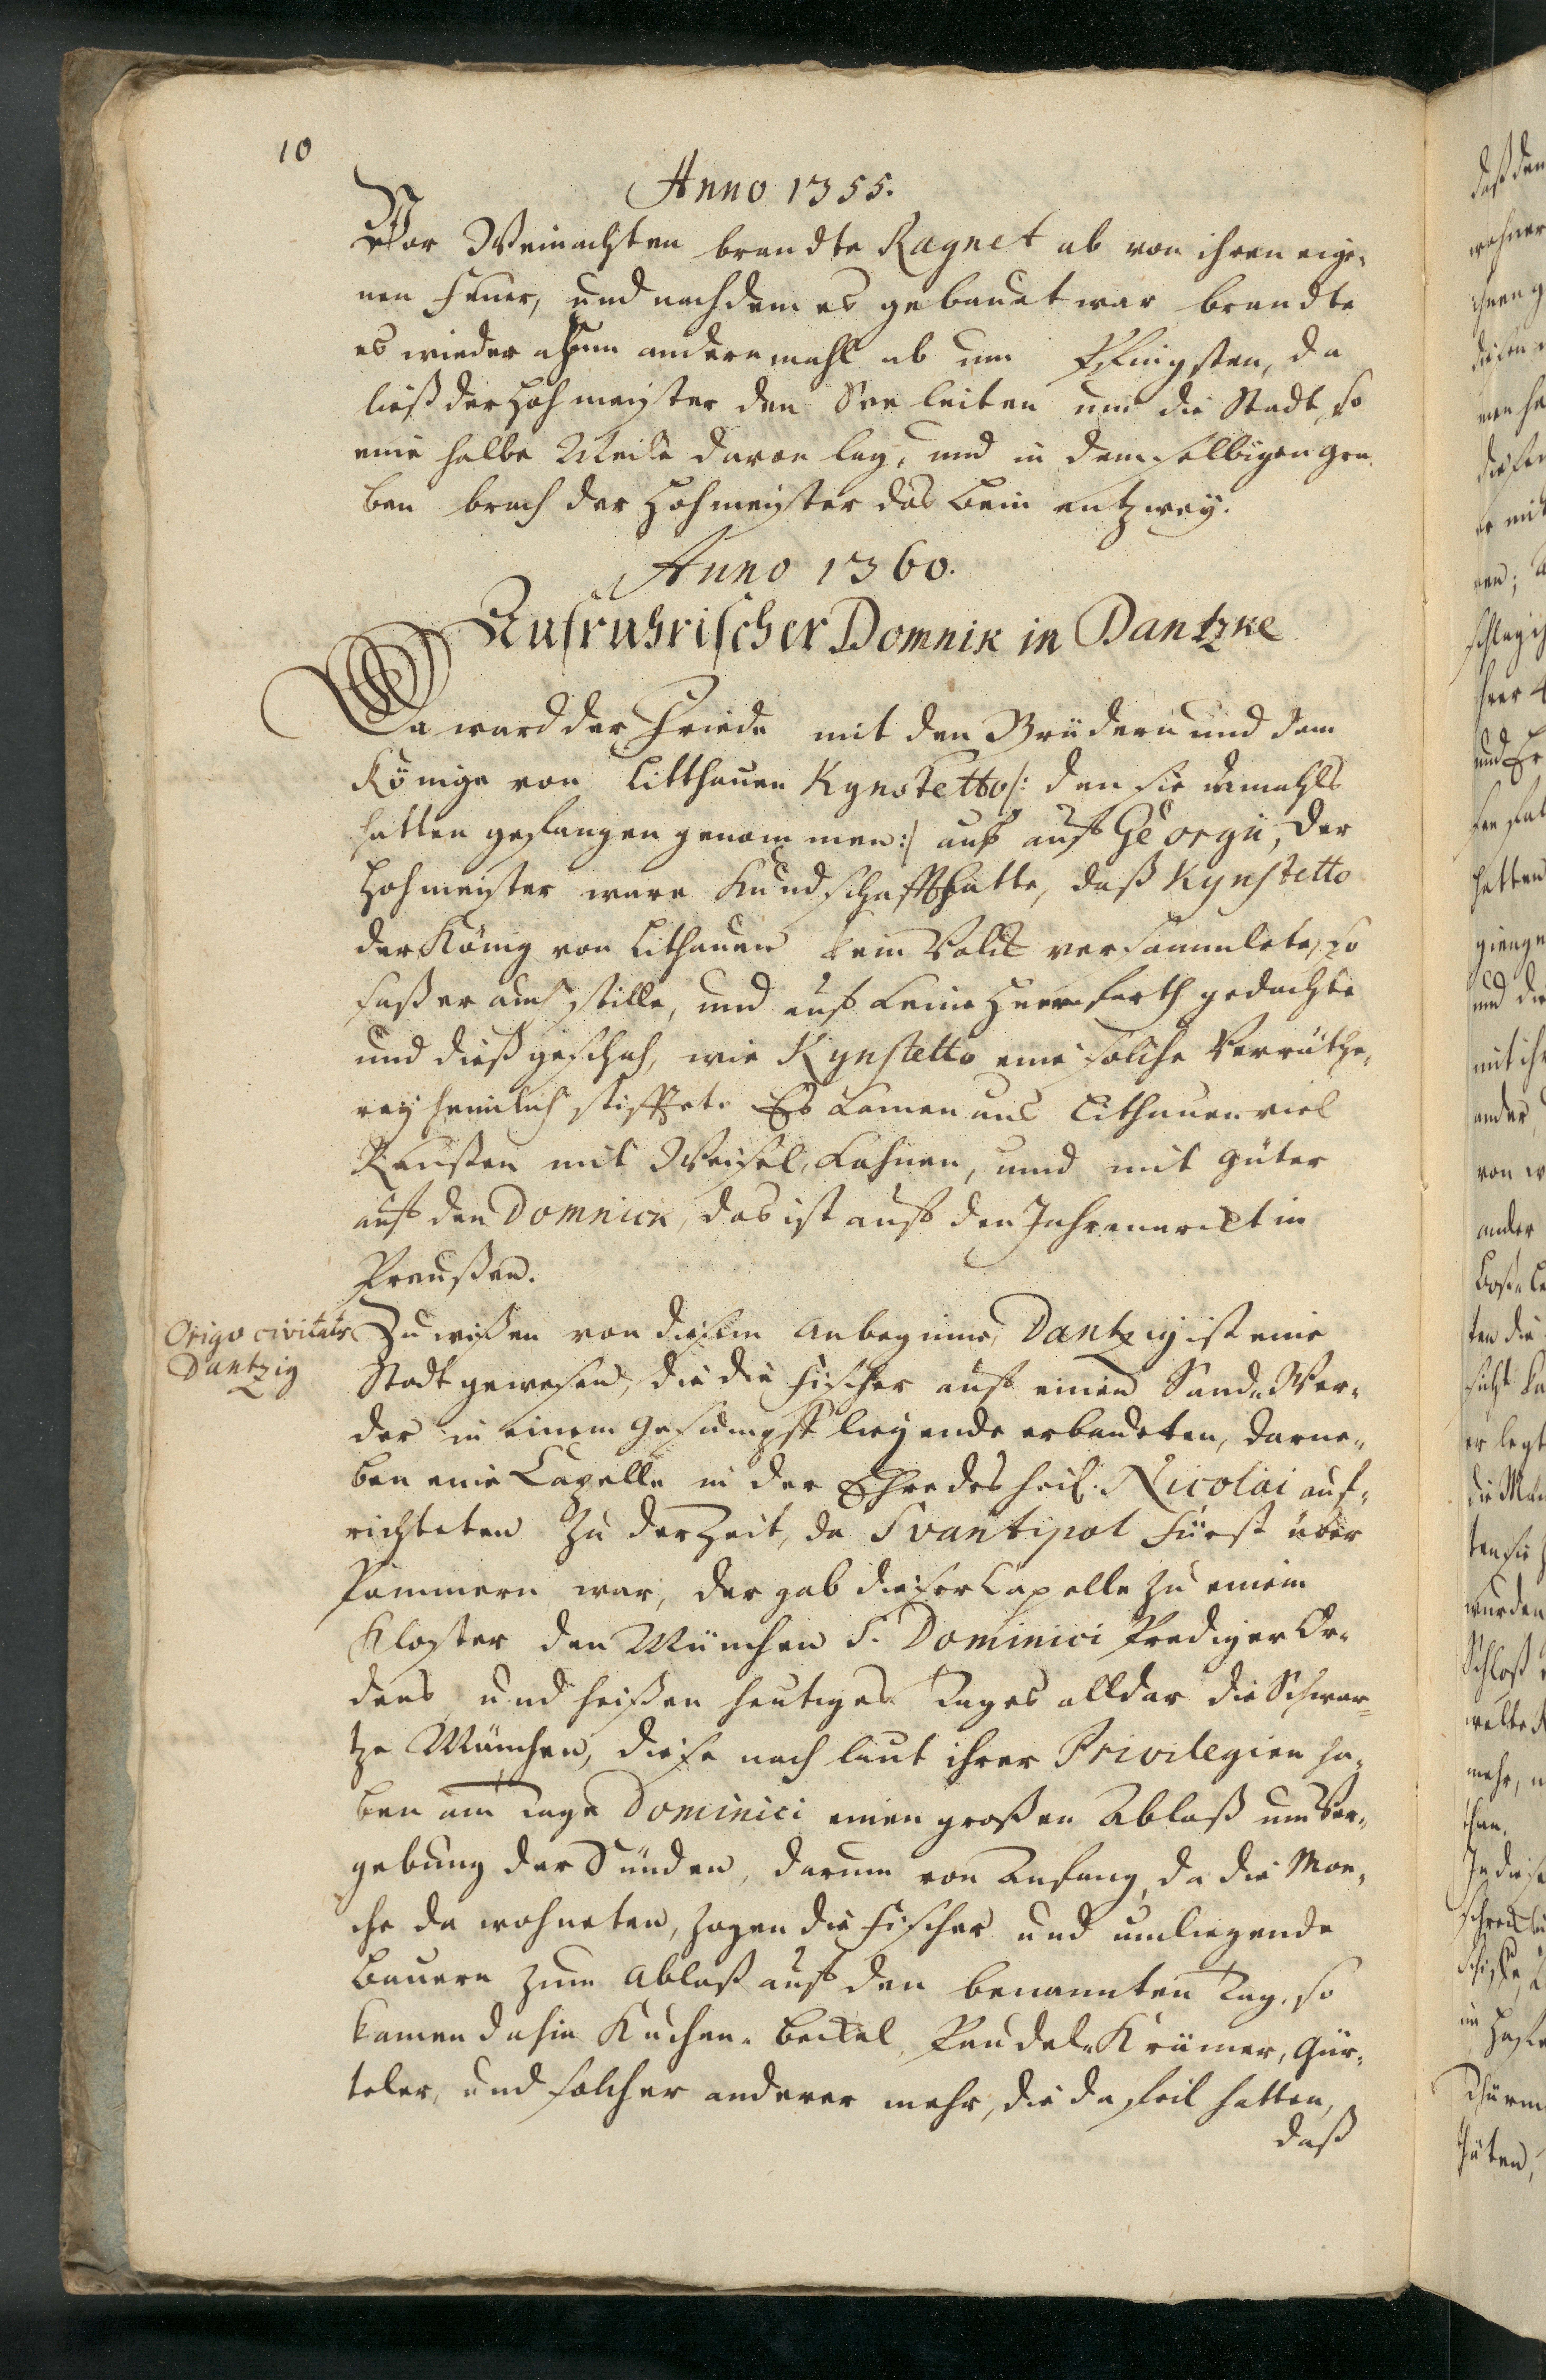 10
Anno 1355.
Vor Weinachten brandte Ragnet ab von ihren eige¬
nen Feuer, und nachdem es gebauet war brandte
es wieder zum andern mahl ab um Pfingsten, da
ließ der Hohmeister den See leiten um die Stadt, so
eine halbe Meile davon lag, und in demselbigen gra¬
ben brach der Hohmeister das Bein entzwey.
Anno 1360.
Aufruhrischer Domnik in Dantzke
Da ward der Friede mit den Brüdern und dem
Könige von Litthauen Kynstetto /: den sie damahls
hatten gefangen genommen :/ aus auf Georgii, der
Hohmeister ware Kundschafft hatte, daß Kynstetto
der König von Lithauen kein Volck versammlete, so
saß er auch stille, und auf keine Heerfarth gedachte
und dieß geschah, wie Kynstetto eine solche Verräthe¬
rey heimlich stifftete. Es kamen aus Lithauen viel
Reußen mit Weisel, Kahnen, und mit güter
auf den Domnick, das ist auf den Jahrmarckt in
Preußen.
Origo civitatis
Dantzig
Zu wißen von diesem Anbeginne, Dantzig ist eine
Stadt gewesen, die die Fischer auf einen Sand-Wer¬
der in einem Gesümpff liegende erbaueten, darne¬
ben eine Capelle in der Ehre des heil. Nicolai auf¬
richteten Zu der Zeit, da Svantipol Fürst über
Pommern war, der gab dieser Capelle zu einem
Kloster den München S. Dominici Prediger Or¬
dens, und heißen heutiges Tages alldar die Schwar¬
tze München, diese nach laut ihrer Privilegien ha¬
ben am Tage Dominici einen großen Ablaß um Ver¬
gebung der Sünden, darum von Anfang, da die Mon¬
che da wohneten, zogen die Fischer und umliegende
Bauern zum Ablaß auf den benannten Tag, so
kamen dahin Kuchen-Beckel, Paudel-Krämer, Gür¬
teler, und solcher anderer mehr, die da feil hatten,
daß